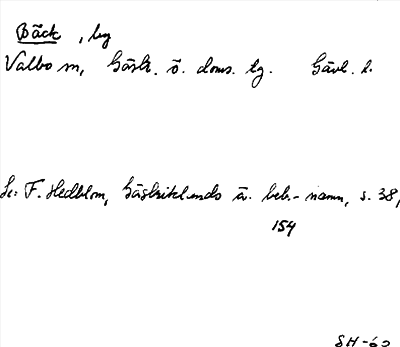 Bäck, by
Valbo sn, Gästr. ö. doms. tg. Gävl. l.
Se: F. Hedblom, Gästriklands ä. beb.-namn, s. 38,
154
SH-62